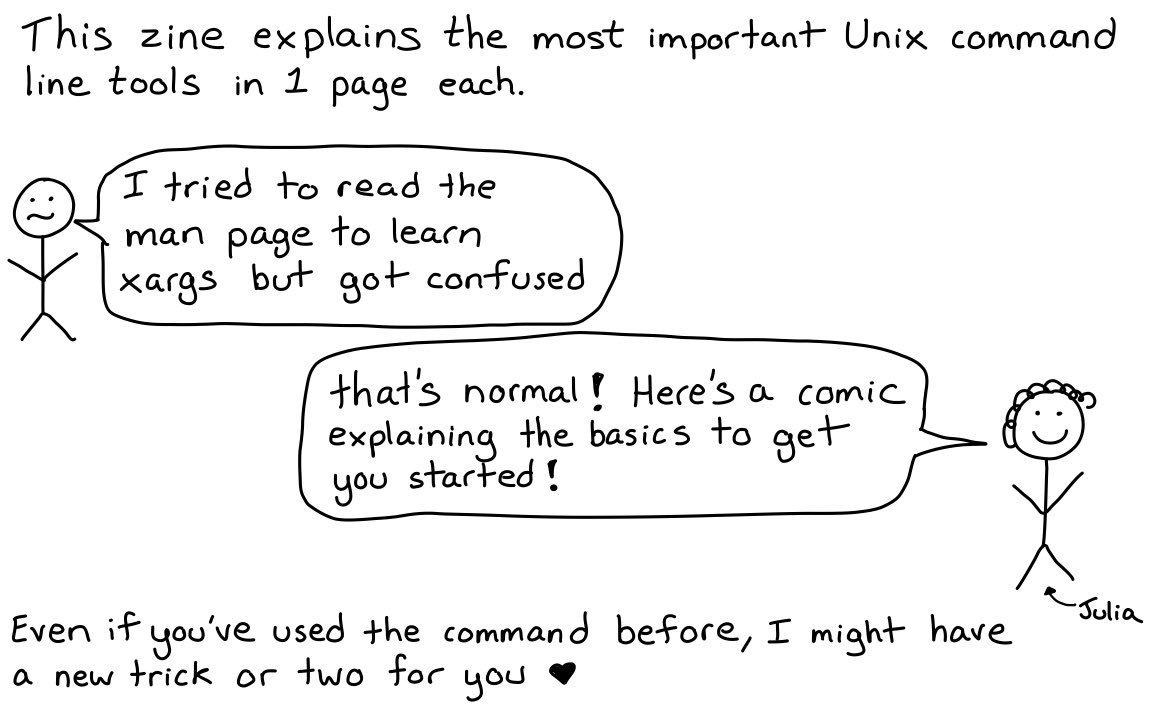 This zine explains the most important Unix command
line tools in 1 page each.
I tried to read the
man page to learn
xargs but got confused
that's normal! Here's a comic
explaining the basics to get
you started!
Julia
Even if you've used the command before, I might have
a new trick or two for you ♥